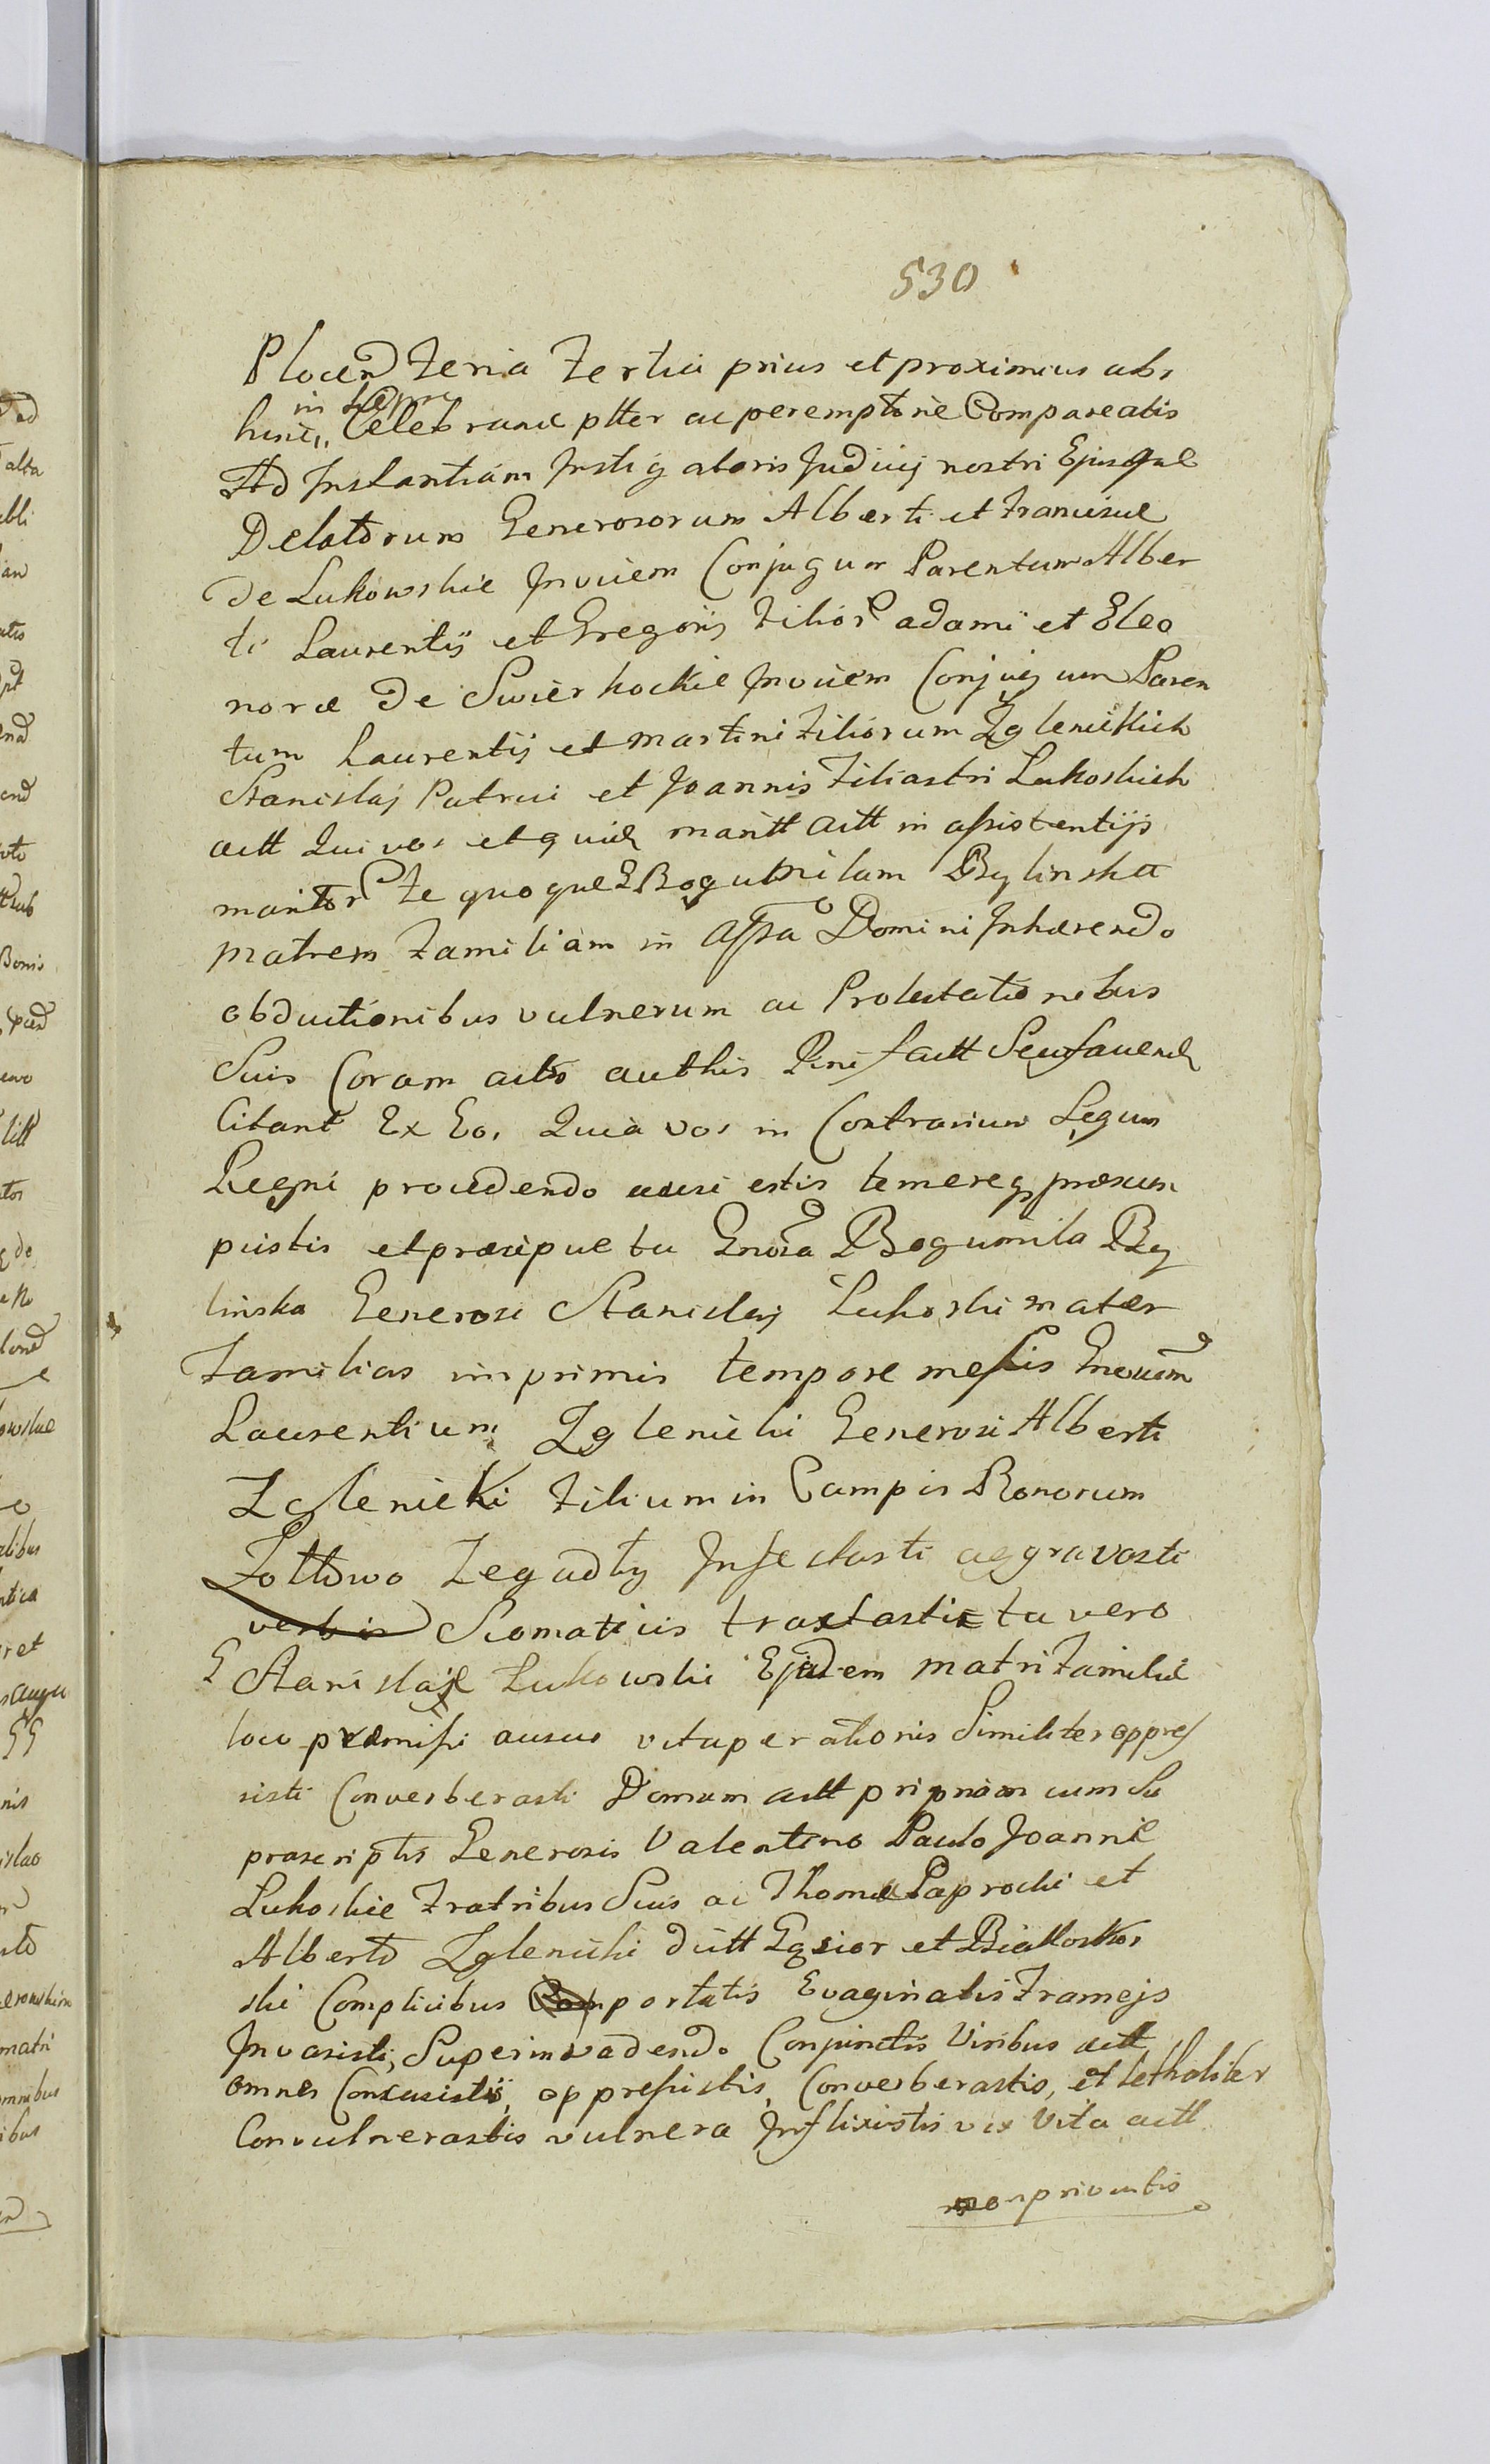 530
Plocen Feria Tertia prius et proximius abs
in term
hinc,, Celebrand ptter ac peremptorie Compareatis
Ad Instantiam Instigatoris Judicij nostri Ejusque
Delatorum Generosorum Alberti et Franciscae
de Lukowskie Invicem Conjugum Parentum Alber
ti Laurentij et Gregorij Filior adami et Eleo
norae de Swierkockie Invicem Conjugum Paren
tum Laurentij et Martini Filiorum Zglenickich
Stanislaj Patrui et Joannis Filiastri Lukoskich
actt Qui vos et quid maritt actt in assistentijs
maritor te quoque G Bogumilam Bylinska
matrem Familiam in assa Domini Inhaerendo
obductionibus vulnerum ac Protestationibus
Suis Coram actis authis
Citant Ex Eo, Quia vos in Contrarium Legum
Regni procedendo ausi estis temereq praesum
psistis et praecipue tu Gnosa Bogumila By
linska Generosi Stanislaj Lukoski mater
Familias imprimis tempore messis Gnerosum
Laurentium Zglenicki Generosi Alberti
Zglenicki Filium in Campis Bonorum
Zottowo Zegadty Insectasti aggravasti
verbis Stomaticis tractastis tu vero
G Stanislaje Lukowski Ejusdem matri Familiae
loco praemissi ausus vituperationis Similiter oppres
sisti Converberasti Domum actt propriam cum Su
prascriptis Generosis Valentino Paulo Joanne
Lukoskie Fratribus Suis ac Thoma Paprocki et
Alberto Zglenicki dictt Gasior et Bialkosko,
ski Complicibus Comportatis Evaginatis Frameis
Invasisti, Superinvadendo Conjunctis Viribus actt
omnes Concusistis, oppressistis, Converberastis, et lethaliter
Convulnerastis vulnera Inflixistis vix Vita actt
non privastis